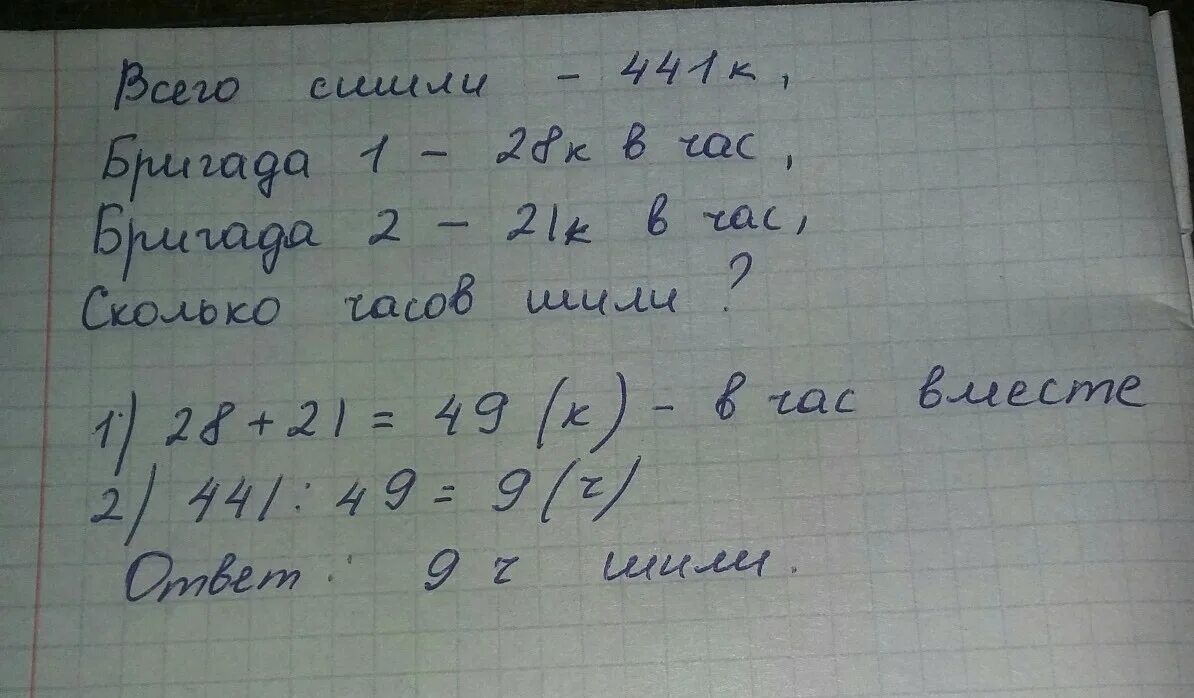 Всего сшили - 441к,
Бригада 1 - 28к в час,
Бригада 2 - 21к в час,
Сколько часов шили?
1) 28 + 21 = 49 (к) - в час вместе
2) 441 : 49 = 9 (ч)
Ответ: 9 ч шили.